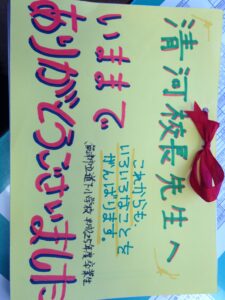 清河校長先生へ
いままで
ありがとうございました
これからも、
いろいろなことを
がんばります。
小学校 平成25年度卒業生